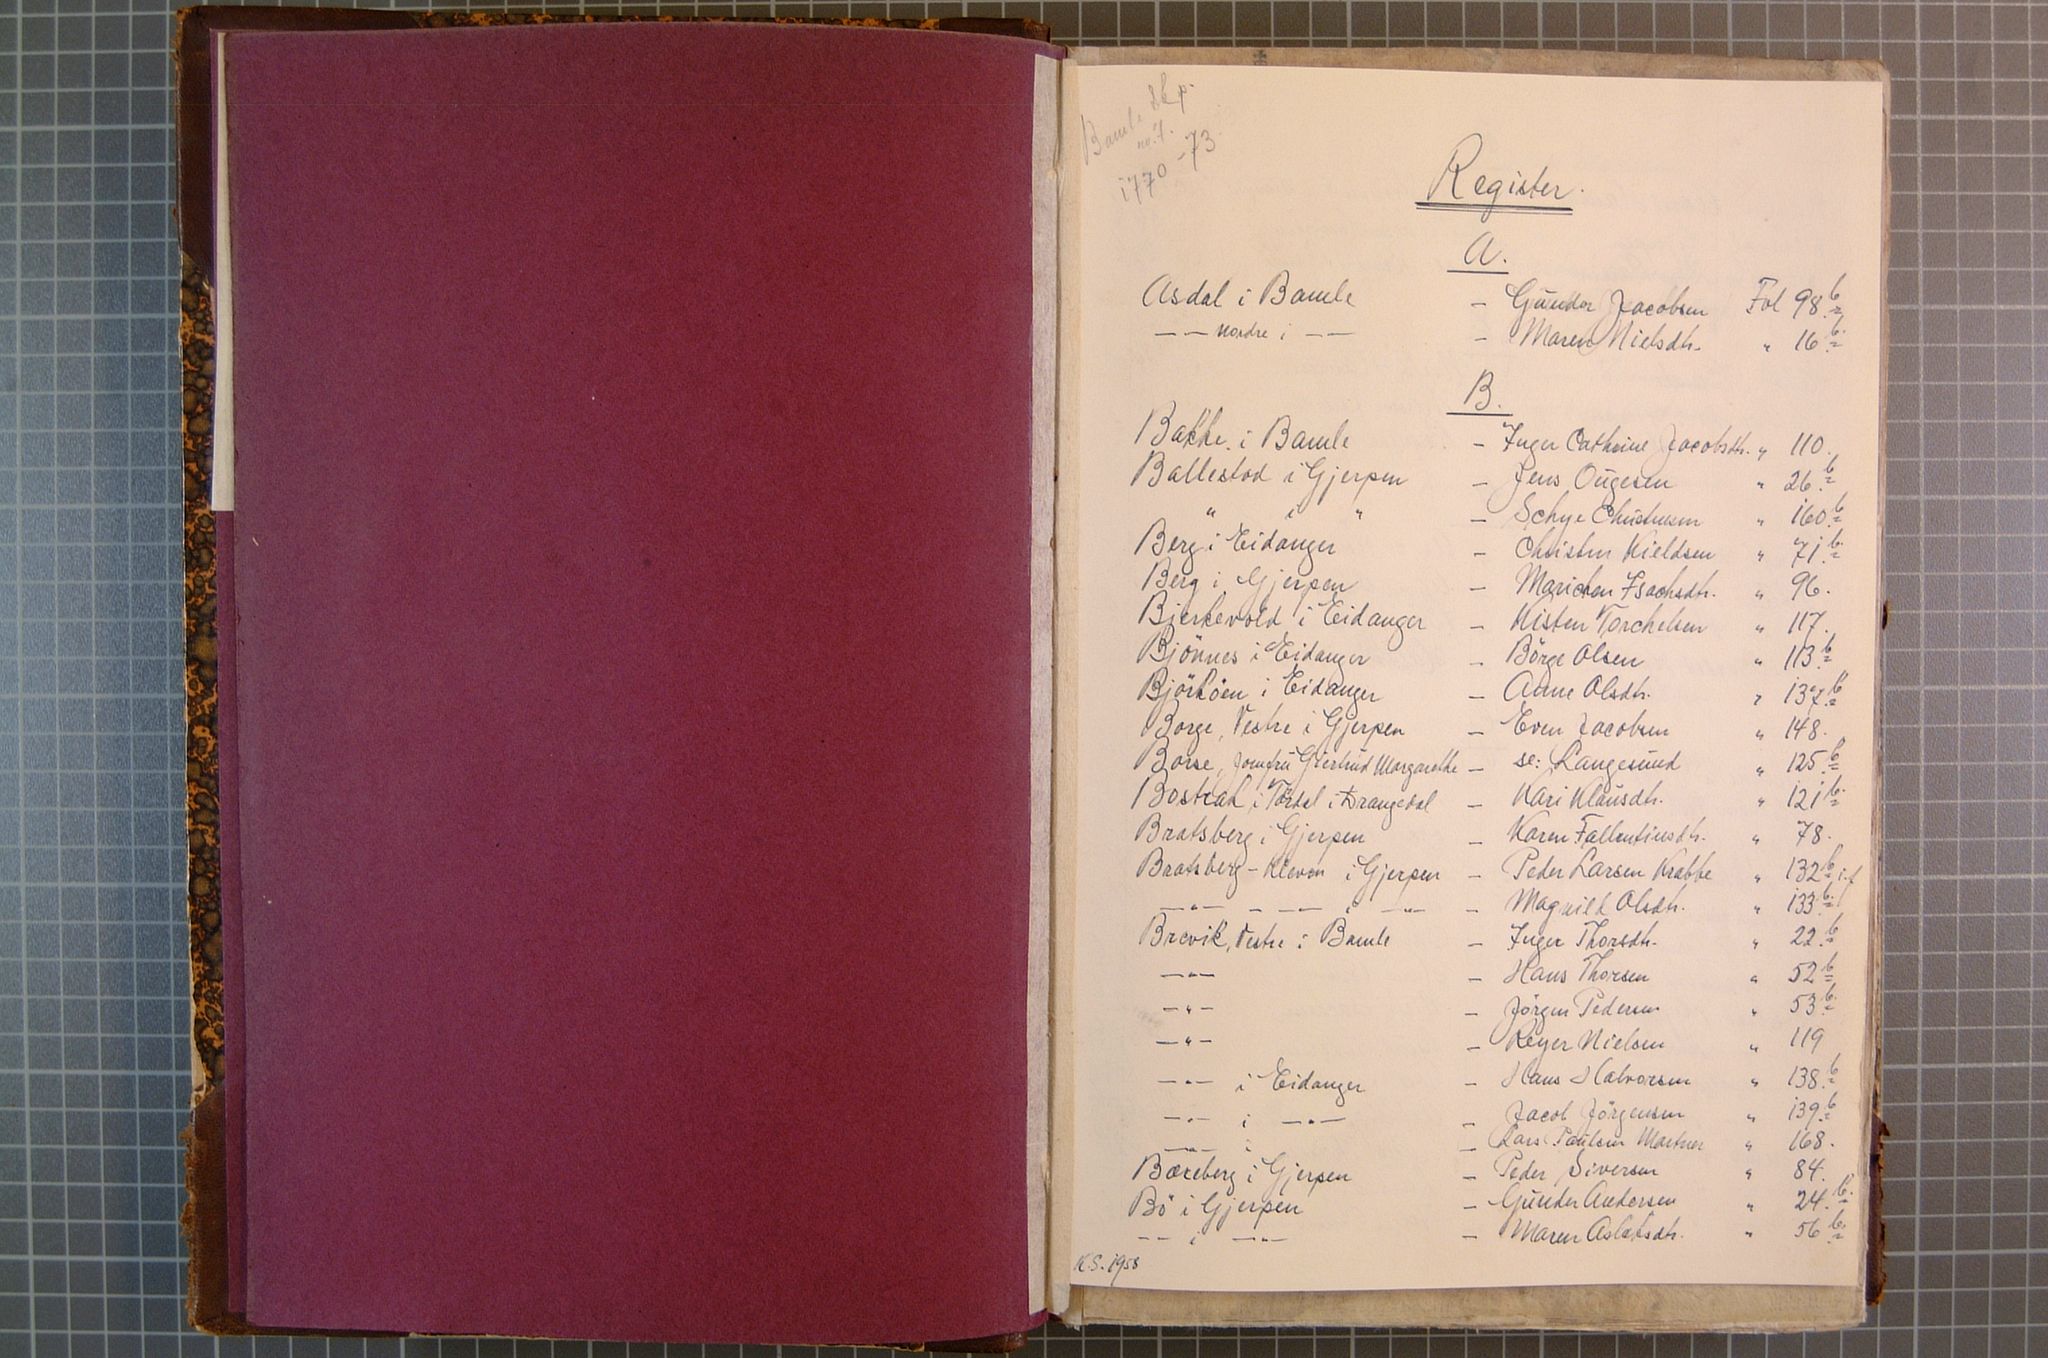 Bamle Skp.
no. 7.
1770-73
Register.
A.
Asdal i Bamle — Gunder Jacobsen Fol 98 b
— — nordre i — — — Maren Nielsdtr. " 16 b.
B.
Bakke i Bamle — Inger Cathrine Jacobsdtr. " 110.
Ballestad i Gjerpen — Jens Ougesen " 26 b
" i " — Schye Christensen " 160 b
Berg i Eidanger — Christen Kieldsen " 71 b.
Berg i Gjerpen — Marichen Isachsdtr. " 96.
Bjerkevold i Eidanger — Kisten Torchelsen " 117.
Bjönnes i Eidanger — Börge Olsen " 113 b
Björköen i Eidanger — Anne Olsdtr. " 137 b
Borge, Vestre i Gjerpen — Even Jacobsen " 148.
Borse, Jomfru Giertrud Margarethe — se: Langesund " 125 b
Bostrak i Tördal i Drangedal — Kari Klausdtr. " 121 b.
Bratsberg i Gjerpen — Karen Fallentinsdtr. " 78.
Bratsberg-Kleven i Gjerpen — Peder Larsen Krabbe " 132 b i.f
— " — — — — i — " — — Magnild Olsdtr. " 133 b.
Brevik, Vestre i Bamle — Inger Thorsdtr. " 22 b
— " — — Hans Thorsen " 52 b
— " — — Jörgen Pedersen " 53 b.
— " — — Reyer Nielsen " 119
— " — i Eidanger — Hans Halvorsen " 138 b
— " — i — " — — Jacob Jörgensen " 139 b
— " — i — Lars Paulsen Mortner " 168.
Bæreberg i Gjerpen — Peder Siversen " 84.
Bö i Gjerpen — Gunder Andersen " 24 b.
— — i — " — — Maren Aslaksdtr. " 56 b.
K.S. 1958